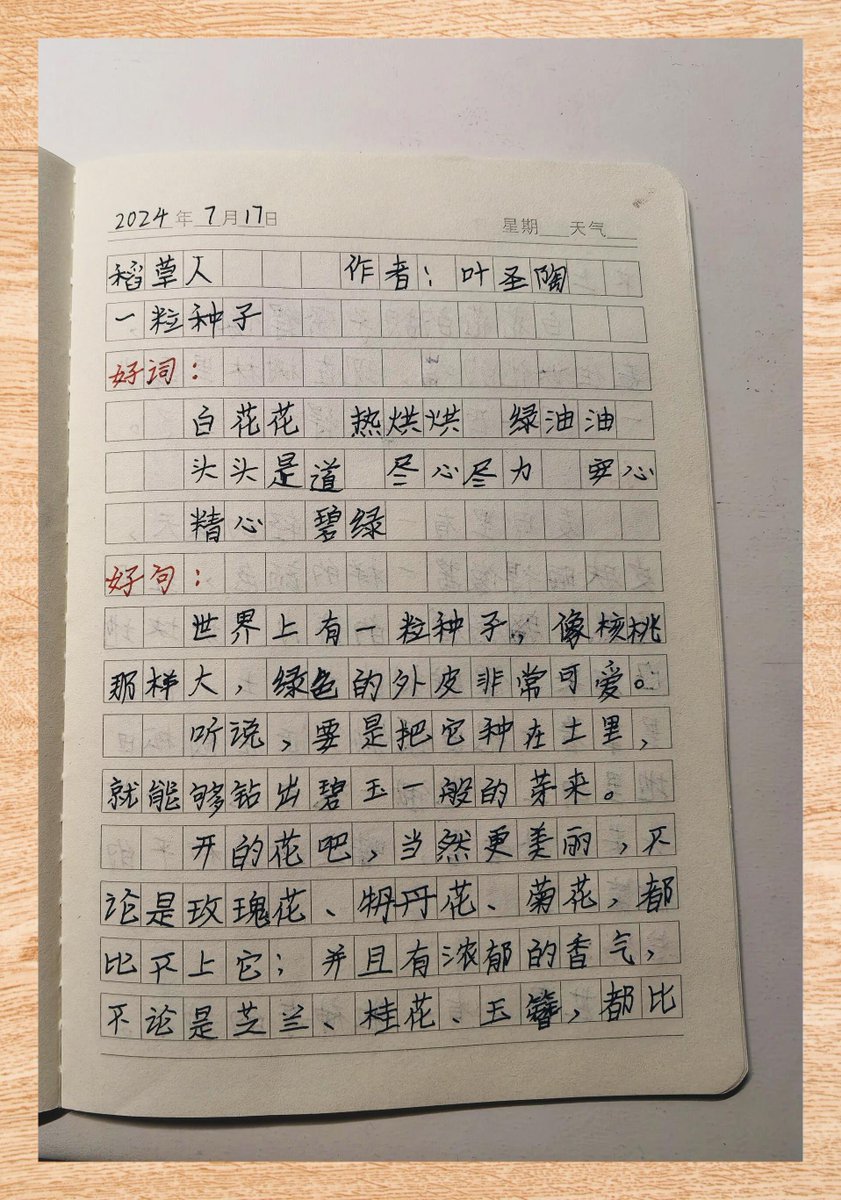 2024年7月17日 星期 天气
稻草人 作者：叶圣陶
一粒种子
好词：
白花花 热烘烘 绿油油
头头是道 尽心尽力 安心
精心 碧绿
好句：
世界上有一粒种子，像核桃
那样大，绿色的外皮非常可爱。
听说，要是把它种在土里，
就能够钻出碧玉一般的芽来。
开的花吧，当然更美丽，不
论是玫瑰花、牡丹花、菊花，都
比不上它；并且有浓郁的香气，
不论是芝兰、桂花、玉簪，都比